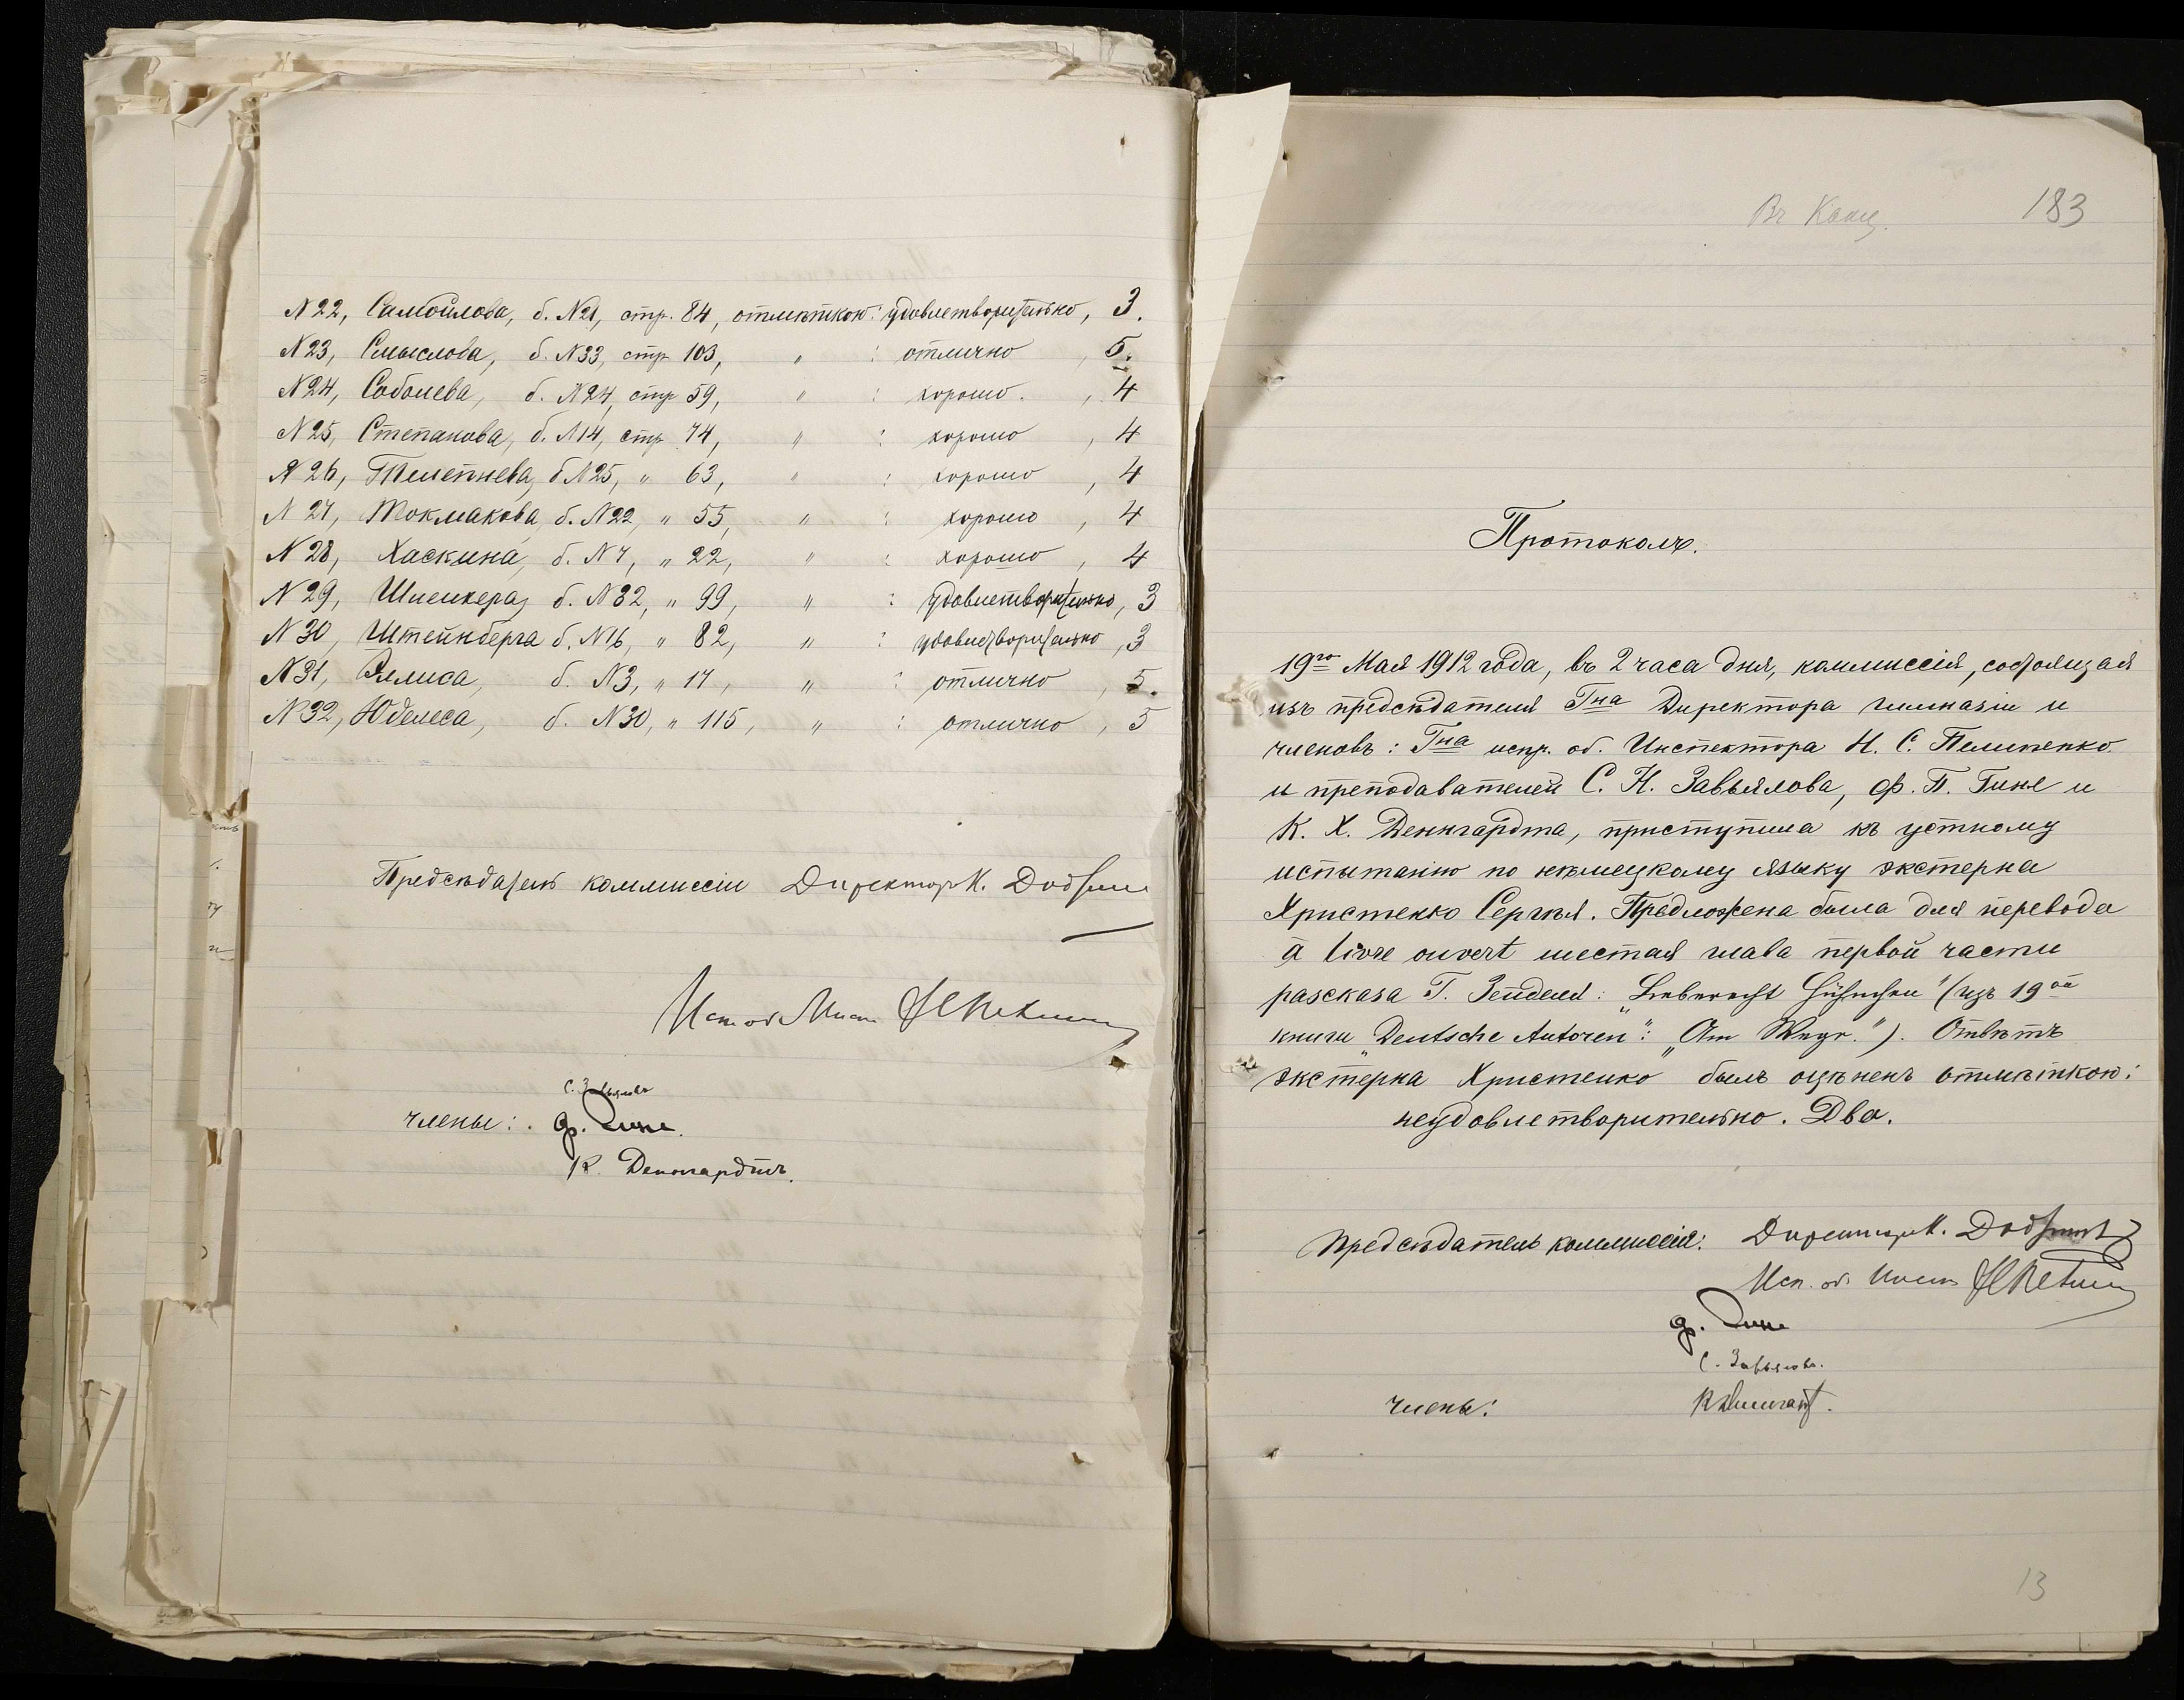 N 22, Самойлова, б. N21, стр. 84, отмѣткою: удовлетворительно, 3.
N 23, Смыслова, б. N33, стр 103, " : отлично , 5.
N 24, Соболева, б. N24, стр 59, " : хорошо. , 4
N 25, Степанова, б. N14, стр 74, " : хорошо , 4
N 26, Телепнева, б N25, " 63, " : хорошо , 4
N 27, Токмакова, б. N22, " 55, " : хорошо , 4
N 28, Хаскина, б. N7, " 22, " : хорошо , 4
N 29, б. N32, " 99, " : удовлетворительно, 3
N 30, Штейнберга б. N16, " 82, " : удовлетворительно , 3
N 31, б. N3, " 17, " : отлично , 5.
N 32, Юделеса, б. N30, " 115, " : отлично , 5
Предсѣдатель коммиссіи Директоръ К.
Исп об Инсп
С. Завьяловъ
члены: . Ф. Гине.
К. Денигардтъ.
Въ Канц. 183
Протоколъ.
19го Мая 1912 года, въ 2 часа дня, коммиссія, состоящая
изъ предсѣдателя Гна Директора гимназіи и
членовъ: Гна испр. об. Инспектора Н. С. Пелипенко
и преподавателей С. Н. Завьялова, Ф. П. Гине и
К. Х. Денигардта, приступила къ устному
испытанію по нѣмецкому языку экстерна
Христенко Сергѣя. Предложена была для перевода
à livre ouvert шестая глава первой части
разсказа Г. Зейделя: „Leberecht Hühnchen" (изъ 19ой
книги „Deutsche Autoren": „Am Wege."). Отвѣтъ
экстерна Христенко былъ оцѣненъ отмѣткою:
неудовлетворительно. Два.
Предсѣдатель коммиссіи: Директоръ К.
Исп. об. Инсп
Ф. Гине
С. Завьяловъ.
члены:
13